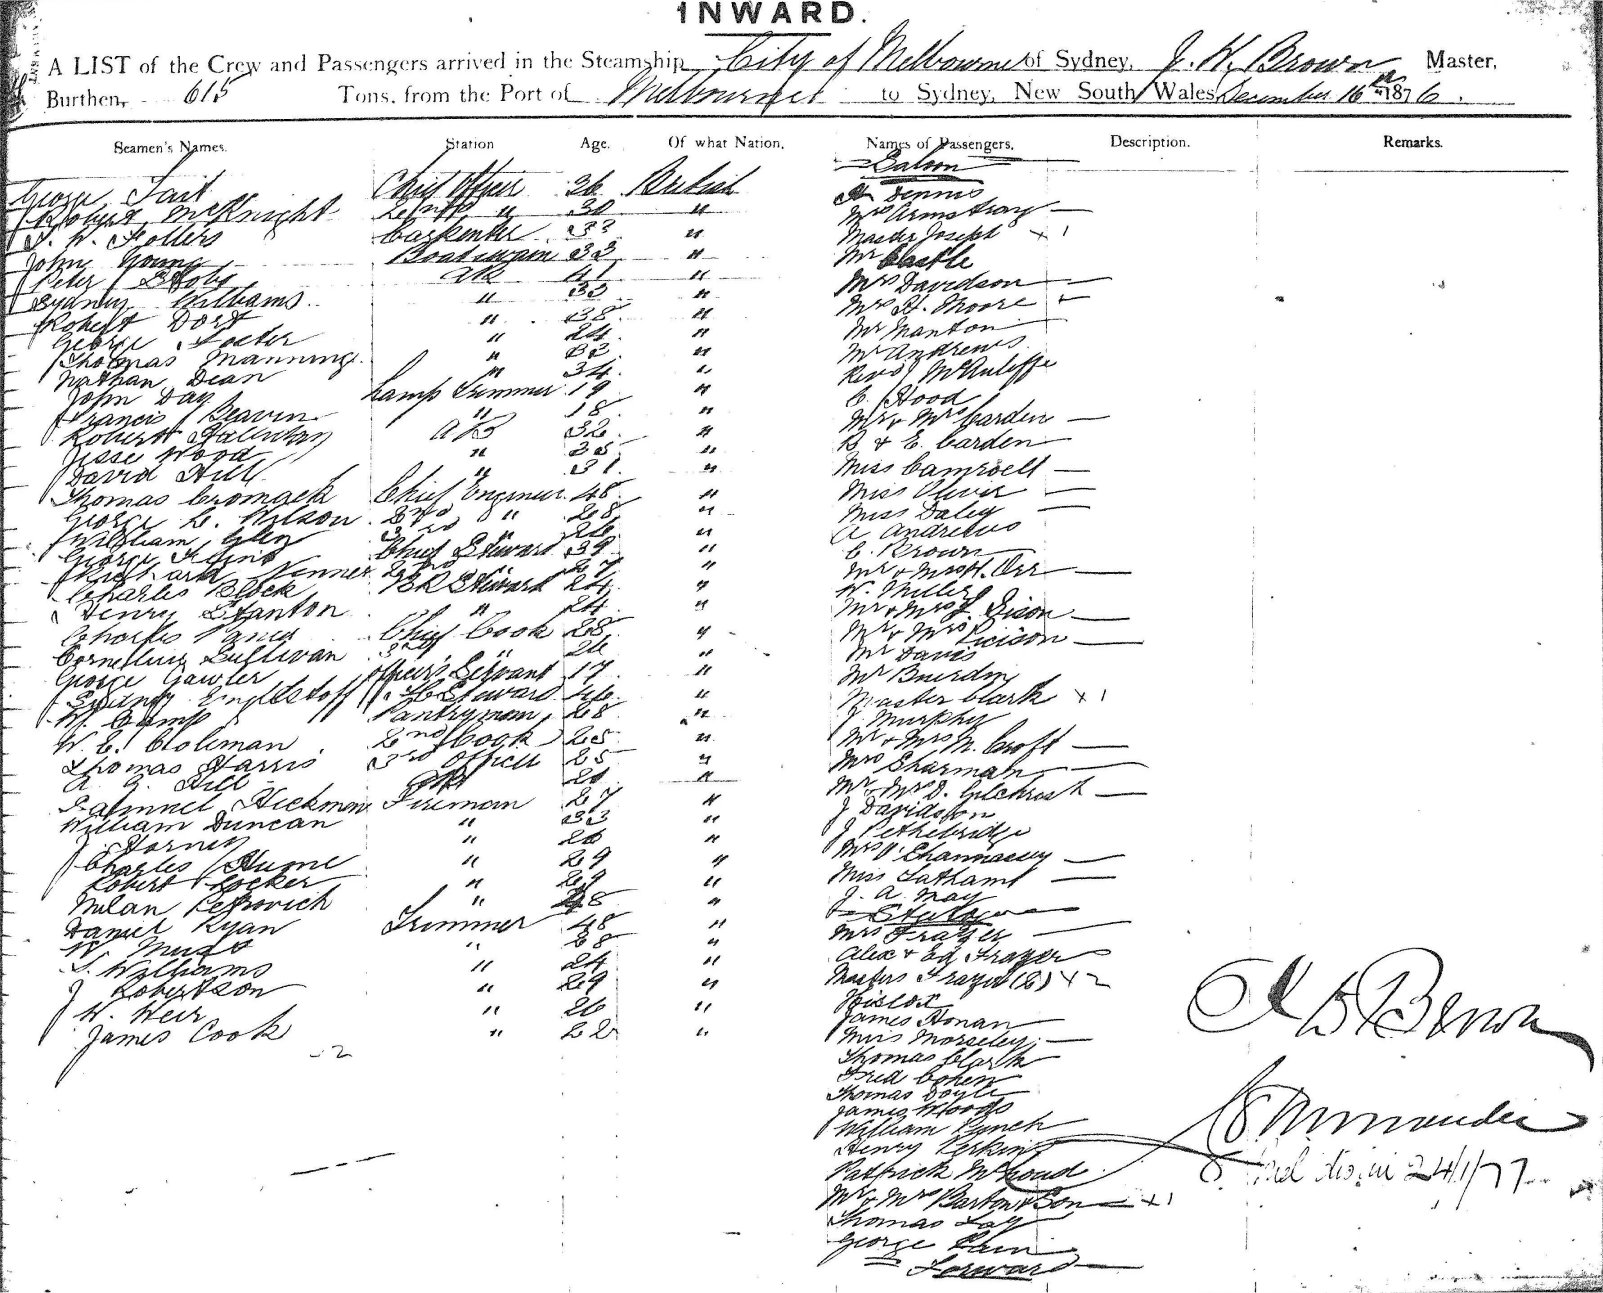 INWARD.
A LIST of the Crew and Passengers arrived in the Steamship City of Melbourne of Sydney, J. H. Brown Master,
Burthen, 615 Tons, from the Port of Melbourne to Sydney, New South Wales, December 16th 1876.
Seamen's Names. Station Age. Of what Nation. Names of Passengers. Description. Remarks.
Saloon
George Tait Chief Officer 36 British
Robert McKnight 2nd " 30 "
Carpenter 33 "
John Young Boatswain 33 "
Peter AB 41 "
Sydney Williams " 33 "
Robert Dort " 38 "
George " 24 "
Thomas Manning " 33 "
Nathan Dean " 34 "
John Day Lamp Trimmer 19 "
Francis Beavin " 18 "
Robert AB 32 "
Jesse Wood " 35 "
David Hill " 31 "
Thomas Cromack Chief Engineer 48 "
George L. Wilson 2nd " 28 "
William Glen 3rd " 26 "
George Chief Steward 39 "
Richard Venner 2nd " 27 "
Charles Block Steward 24 "
Henry Stanton " 24 "
Charles Chief Cook 28 "
Cornelius Sullivan " 26 "
George Gawler Officers Servant 17 "
Sydney Steward 46 "
W. Camp Pantryman 28 "
W. E. Coleman 2nd Cook 25 "
Thomas Harris 3rd Officer 25 "
A. G. Hill 20 "
Samuel Hickman Fireman 27 "
William Duncan " 33 "
J. " 26 "
Charles Hume " 29 "
Robert " 29 "
Milan Petrovich " 28 "
Daniel Ryan Trimmer 48 "
W. " 28 "
S. Williams " 24 "
J Robertson " 29 "
W. Weir " 26 "
James Cook " 22 "
2
Dennis
Mrs Armstrong —
Master Joseph x 1
Mr Castle
Mrs Davidson —
Mrs H. Moore —
Mr Manton
Mr Andrews
Revd McAuliffe
C. Hood
Mr & Mrs Carden —
B & E. Carden
Miss Camroell —
Miss Oliver —
Miss Daley —
A Andrews
C. Brown
Mr & Mrs H. Orr —
W. Miller
Mr & Mrs —
Mr & Mrs —
Mr Davis
Mr
Master Clark x 1
J Murphy
Mr & Mrs N. Croft —
Mrs Sharman —
Mr & Mrs D. Gilchrist —
J Davidson
J Pethebridge
Mrs —
Miss Latham —
J. A. May
Mrs Frazer —
Alex & Ed. Frazer
Masters Frazer (2) x 2
Hiscox
James Honan
Miss Morseley —
Thomas Clark
Fred Cohen
Thomas Doyle
James Woods
William Lynch
Henry Perkins
Patrick
Mr & Mrs Barton & Son — x 1
Thomas Lay
George
Forward
Brown
Commander
24/1/77